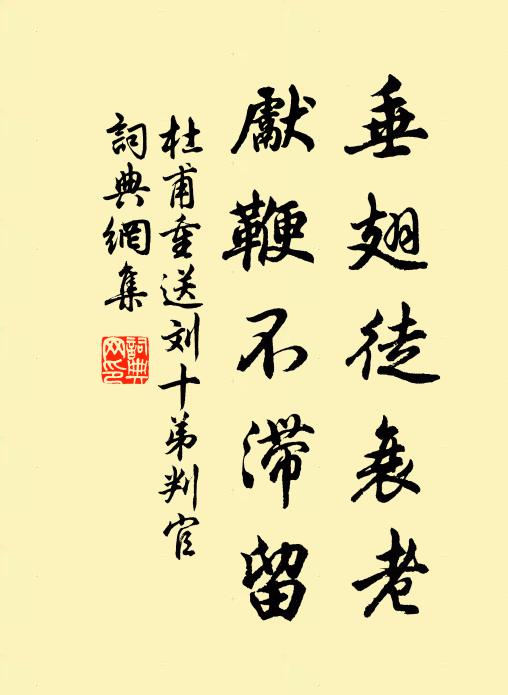 垂翅徒衰老
獻鞭不滯留
杜甫重送刘十弟判官
詞典網集
詞典
网印